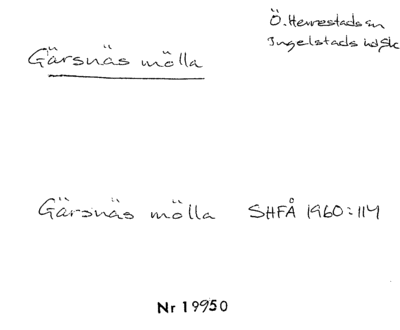 Gärsnäs mölla
Ö. Herrestads sn
Ingelstads hd Sk
Gärsnäs mölla SHFÅ 1960:114
Nr 19950